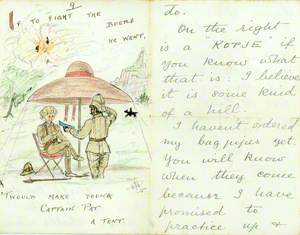 9
IF TO FIGHT THE BOERS
HE WENT,
'TWOULD MAKE YOUNG
CAPTAIN PAT
A TENT.
do.
On the right
is a "KOPJE" if
you know what
that is: I believe
it is some kind
of a hill.
I haven't ordered
my bag pipes yet.
You will know
when they come
because I have
promised to
practice up &